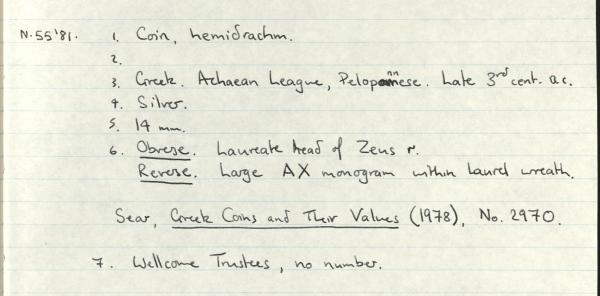 N.55'81. 1. Coin, hemidrachm.
2.
3. Greek. Achaean League, Peloponnese. Late 3rd cent. B.C.
4. Silver.
5. 14 mm.
6. Obverse. Laureate head of Zeus r.
Reverse. Large AX monogram within laurel wreath.
Sear, Greek Coins and Their Values (1978), No. 2970.
7. Wellcome Trustees, no number.